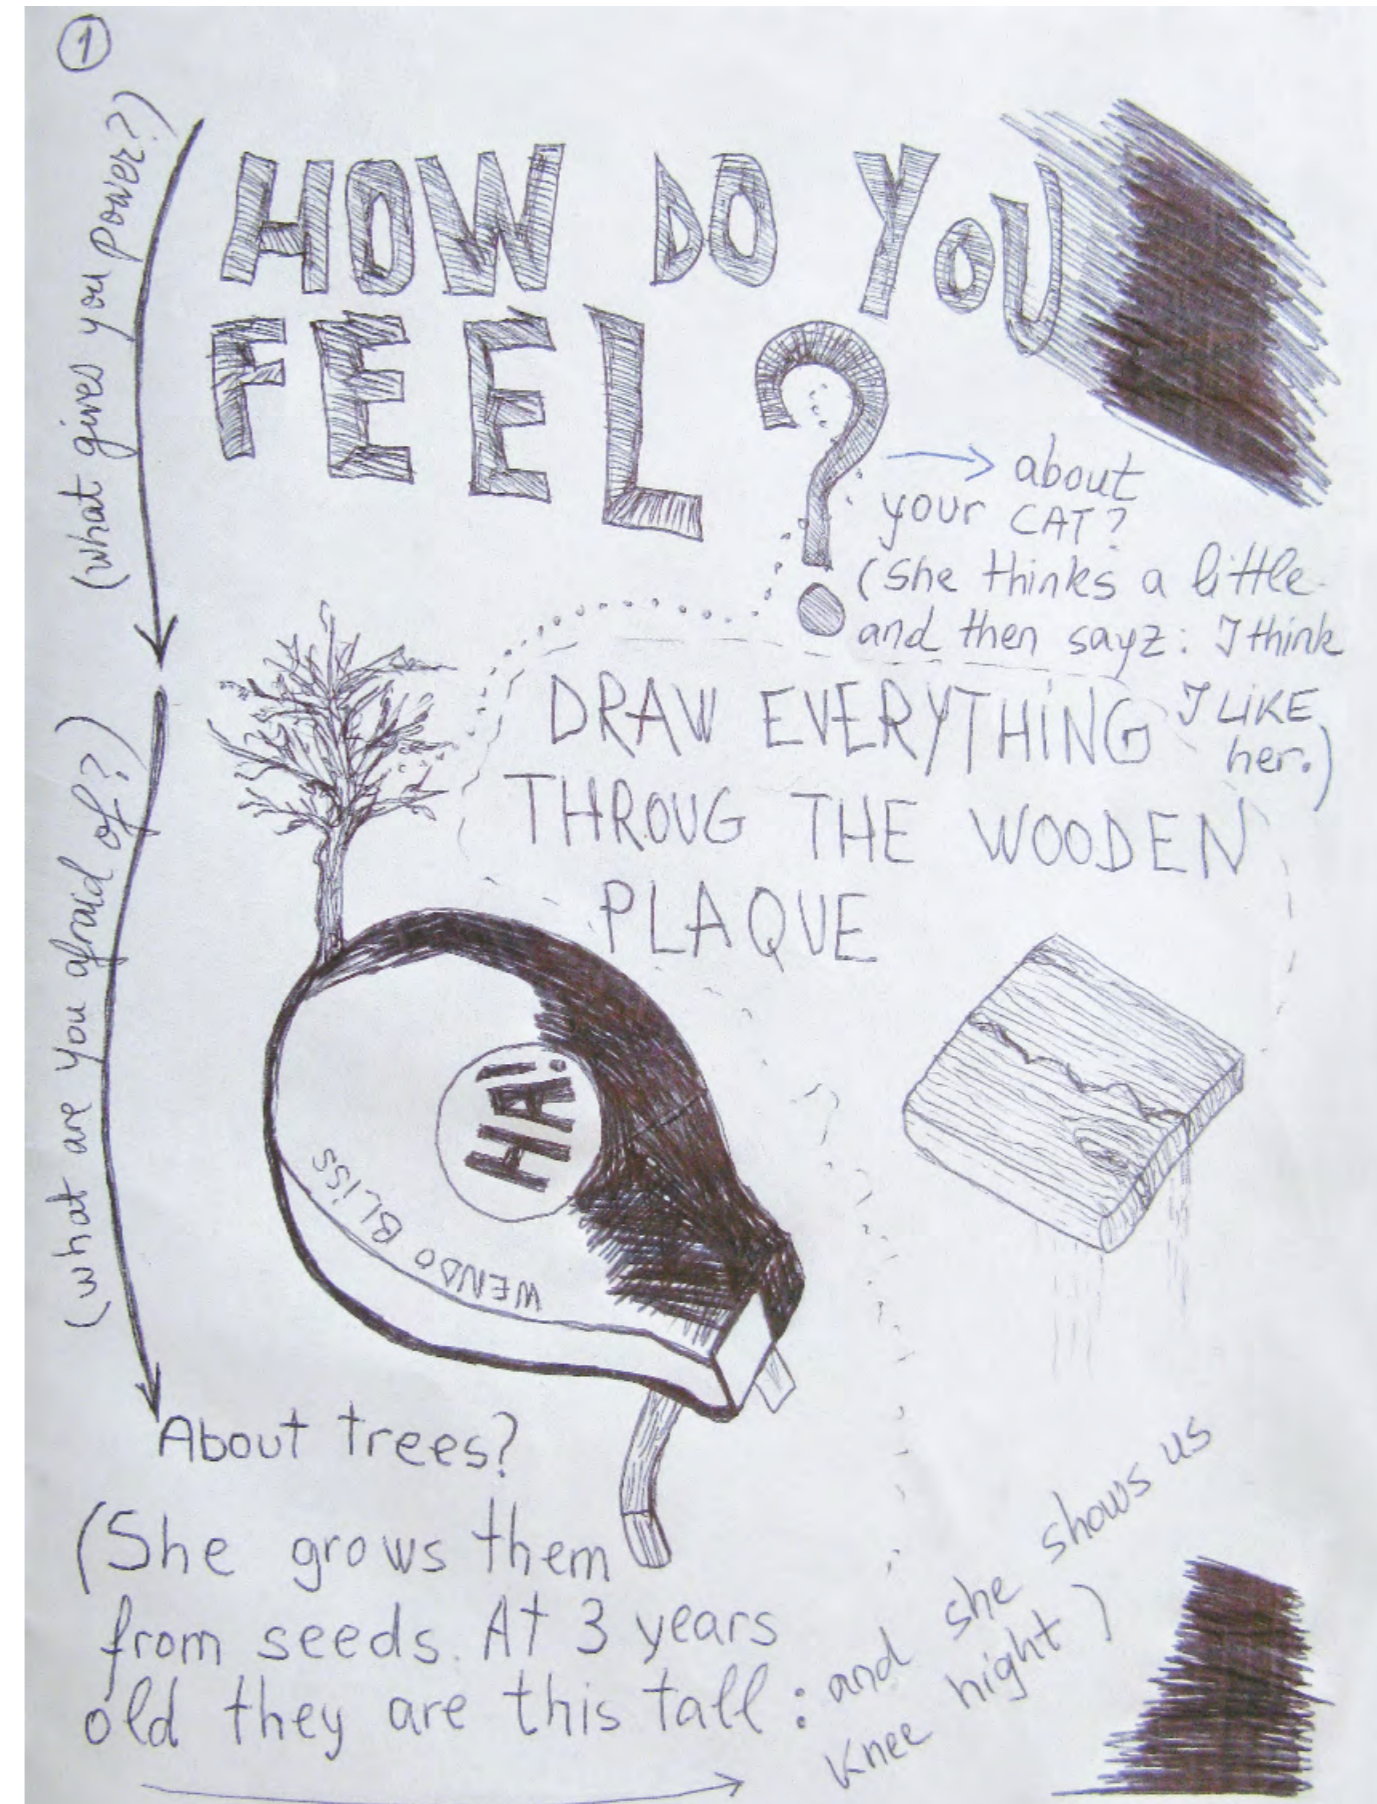 1
(what gives you power?)
HOW DO YOU
FEEL?
about
your CAT?
(she thinks a little
and then sayz: I think
I LiKE
her.)
DRAW EVERYTHiNG
THROUG THE WOODEN
PLAQUE
(what are you afraid of?)
HA!
WENDO BLiSS
About trees?
(She grows them
from seeds. At 3 years
old they are this tall:
and she shows us
knee hight)